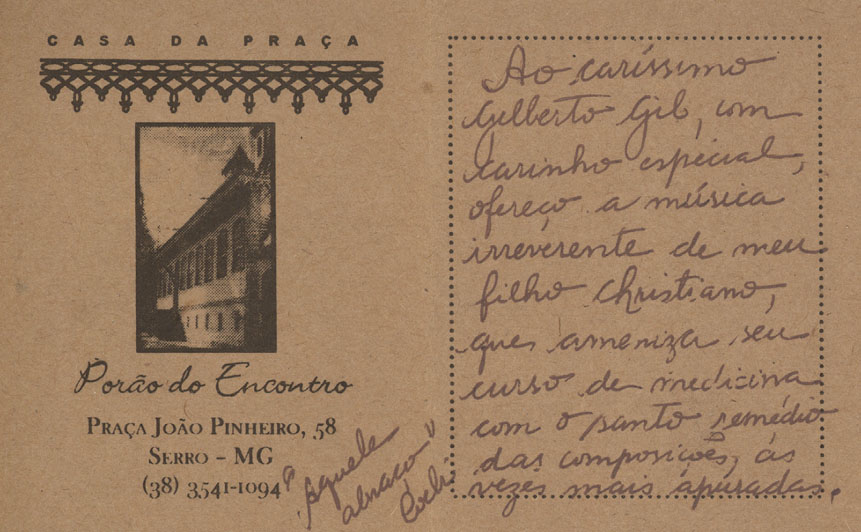 CASA DA PRAÇA
Porão do Encontro
PRAÇA JOÃO PINHEIRO, 58
SERRO – MG
(38) 3541-1094
Ao caríssimo
Gilberto Gil, com
carinho especial,
ofereço a música
irreverente de meu
filho Christiano,
que ameniza seu
curso de medicina
com o santo remédio
das composições, às
vezes mais apuradas.
"Aquele
abraço"